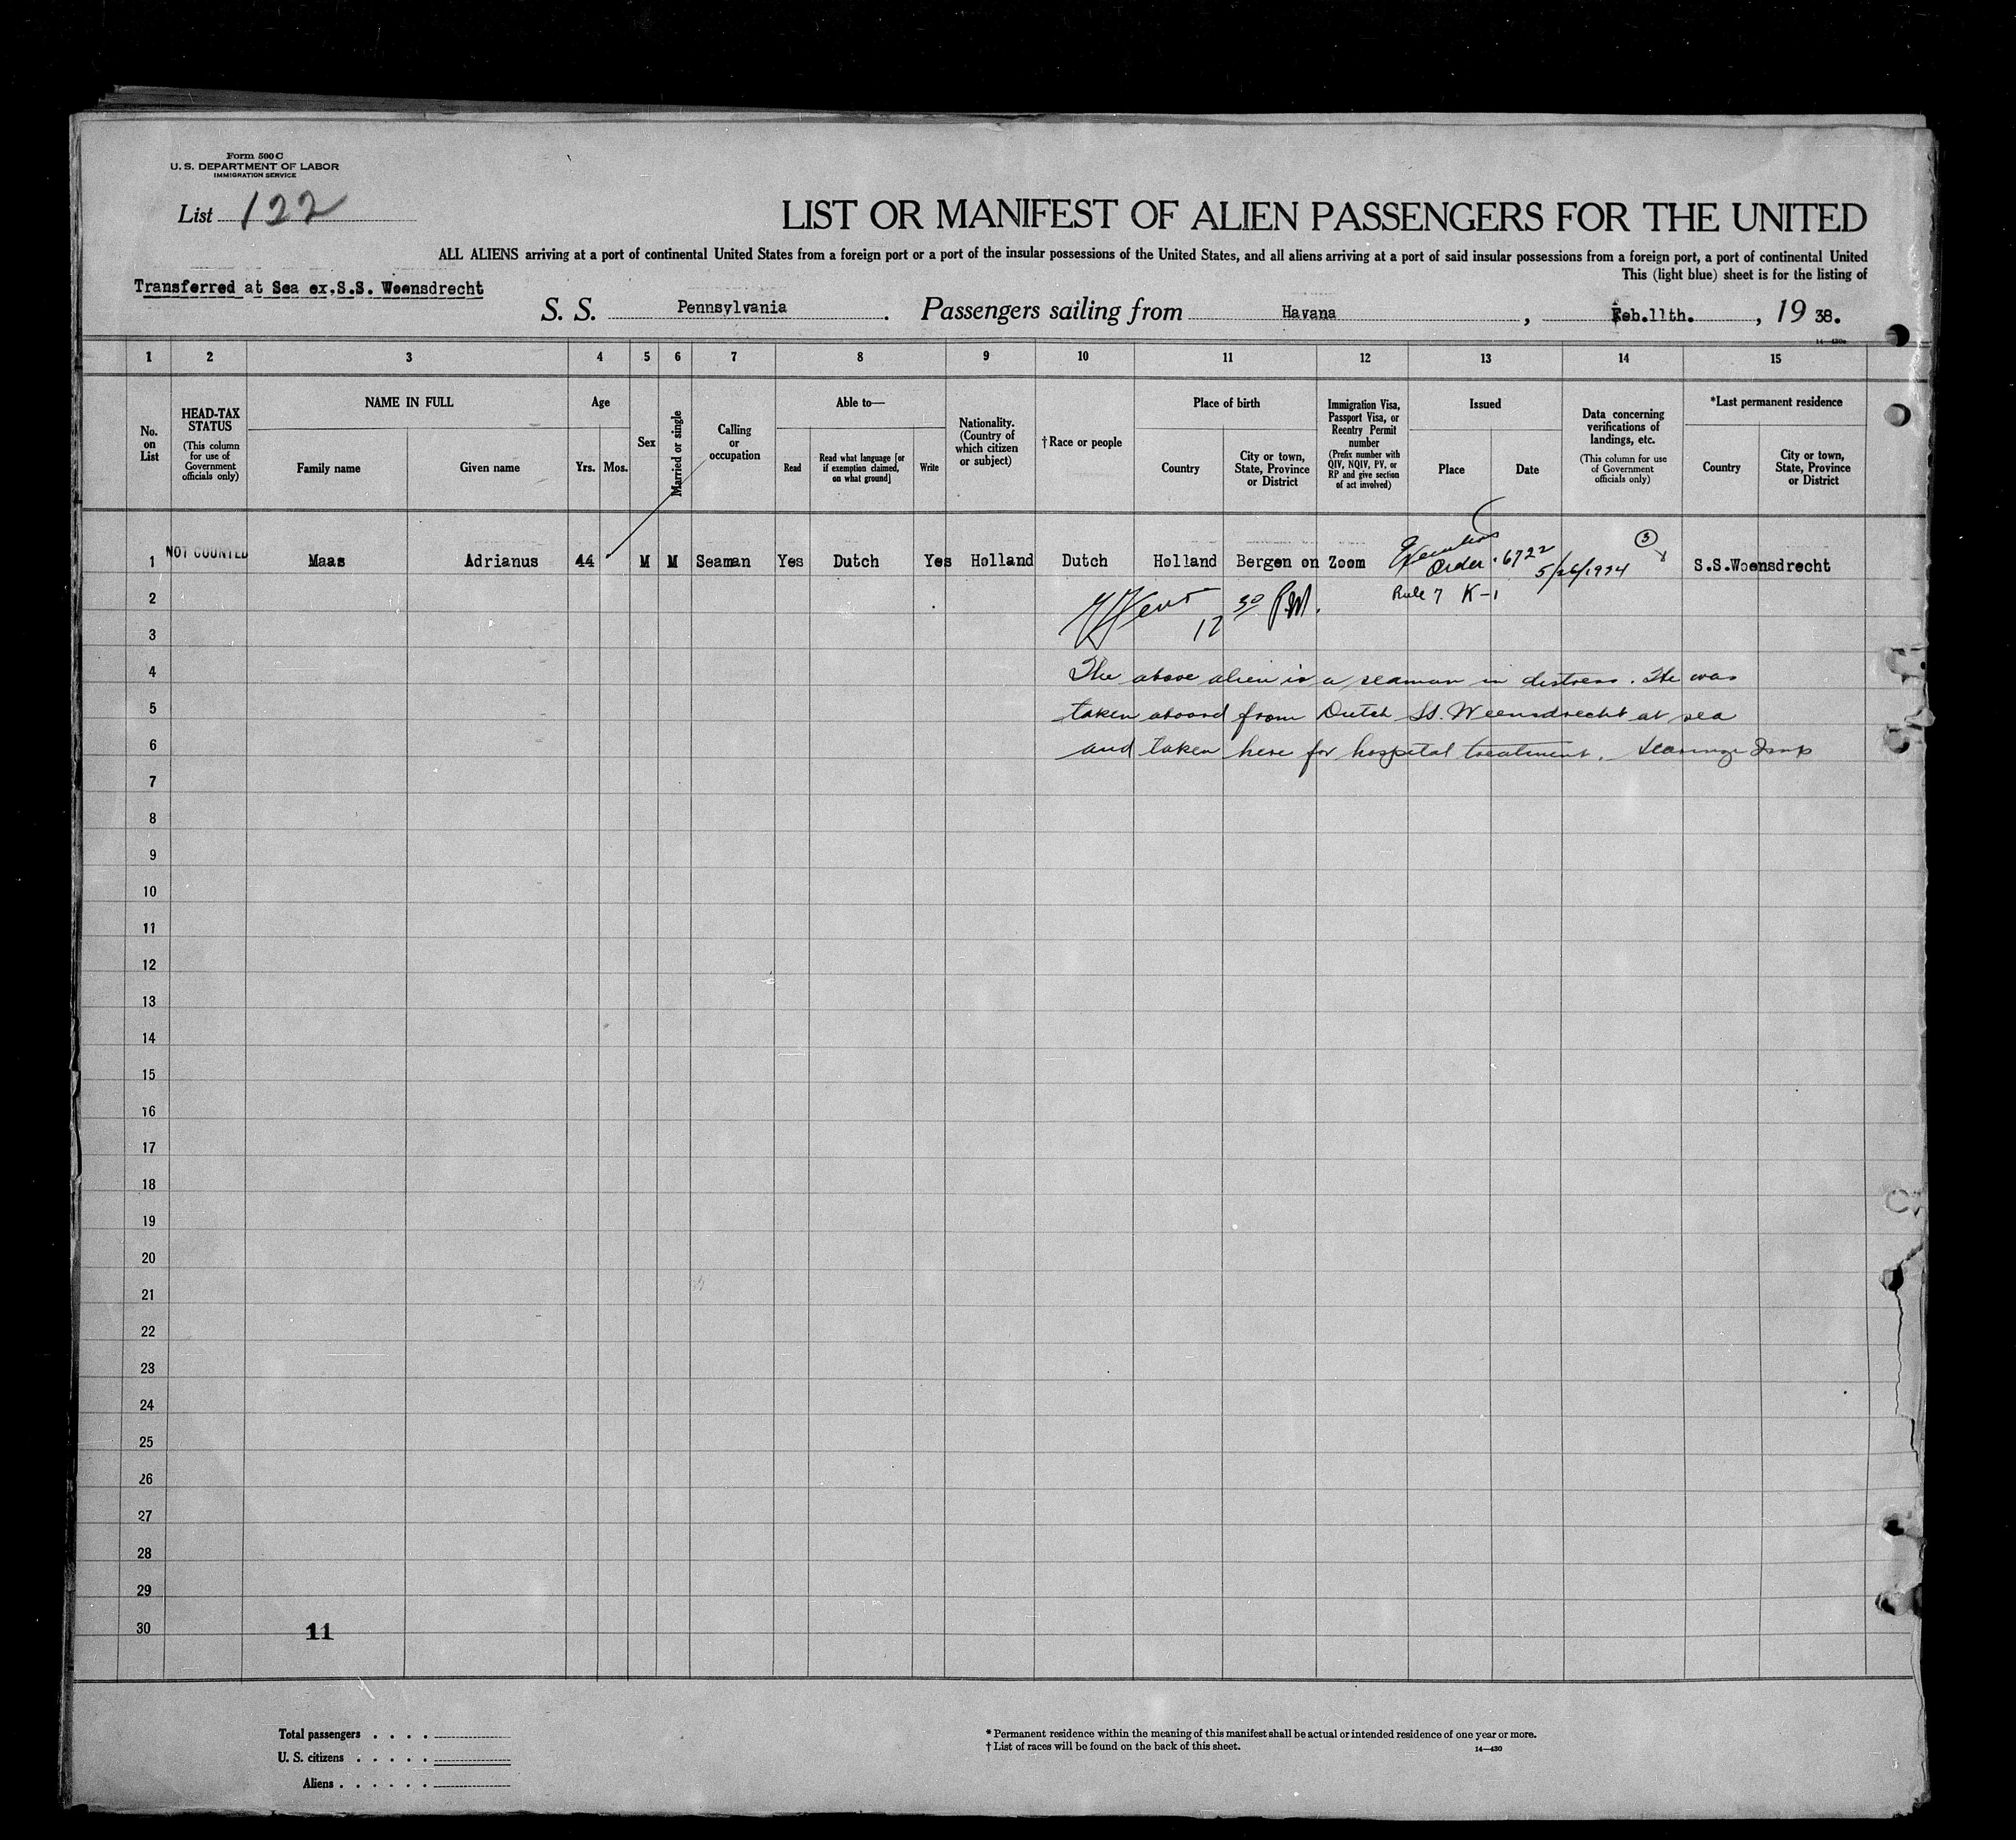 Form 500 C
U. S. DEPARTMENT OF LABOR
IMMIGRATION SERVICE
List 122
LIST OR MANIFEST OF ALIEN PASSENGERS FOR THE UNITED
ALL ALIENS arriving at a port of continental United States from a foreign port or a port of the insular possessions of the United States, and all aliens arriving at a port of said insular possessions from a foreign port, a port of continental United
This (light blue) sheet is for the listing of
Transferred at Sea ex,S.S. Woensdrecht
S. S. Pennsylvania. Passengers sailing from Havana, Feb.11th., 19 38.
14—430
1 2 3 4 5 6 7 8 9 10 11 12 13 14 15
No. on List
HEAD-TAX STATUS (This column for use of Government officials only)
NAME IN FULL
Family name Given name
Age
Yrs. Mos.
Sex
Married or single
Calling or occupation
Able to—
Read Read what language [or if exemption claimed, on what ground] Write
Nationality. (Country of which citizen or subject)
†Race or people
Place of birth
Country City or town, State, Province or District
Immigration Visa, Passport Visa, or Reentry Permit number (Prefix number with QIV, NQIV, PV, or RP and give section of act involved)
Issued
Place Date
Data concerning verifications of landings, etc. (This column for use of Government officials only)
*Last permanent residence
Country City or town, State, Province or District
1 NOT COUNTED Maas Adrianus 44 M M Seaman Yes Dutch Yes Holland Dutch Holland Bergen on Zoom Executive Order 6722 5/26/1934 3 S.S.Woensdrecht
Rule 7 K-1
2 12 30 P.M.
3
4 The above alien is a seaman in distress. He was
5 taken aboard from Dutch SS. Weensdrecht at sea
6 and taken here for hospital treatment.
7
8
9
10
11
12
13
14
15
16
17
18
19
20
21
22
23
24
25
26
27
28
29
30 11
Total passengers . . . .
U. S. citizens . . . . .
Aliens . . . . . .
* Permanent residence within the meaning of this manifest shall be actual or intended residence of one year or more.
† List of races will be found on the back of this sheet.
14—430